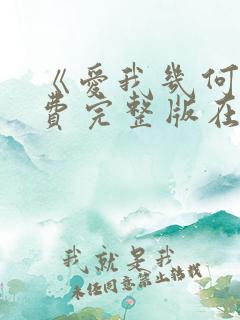 《爱我几何
费完整版在
我就是我
未经同意禁止转载